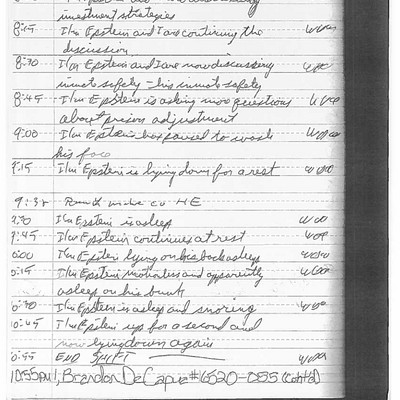 investment strategies
8:15 I/m Epstein and I are continuing the
discussion
8:30 I/m Epstein and I are now discussing
inmate safety - his inmate safety
8:45 I/m Epstein is asking more questions
about prison adjustment
9:00 I/m Epstein has paused to wash
his face
9:15 I/m Epstein is lying down for a rest
9:38 Round made co HE
9:30 I/m Epstein is asleep
9:45 I/m Epstein continues at rest
10:00 I/m Epstein lying on his back asleep
10:15 I/m Epstein motionless and apparently
asleep on his bunk
10:30 I/m Epstein is asleep and snoring
10:45 I/m Epstein up for a second and
now lying down again
10:55 END SHIFT
10:55PM I, Brandon DeCapua #6520-055 (Cont'd)